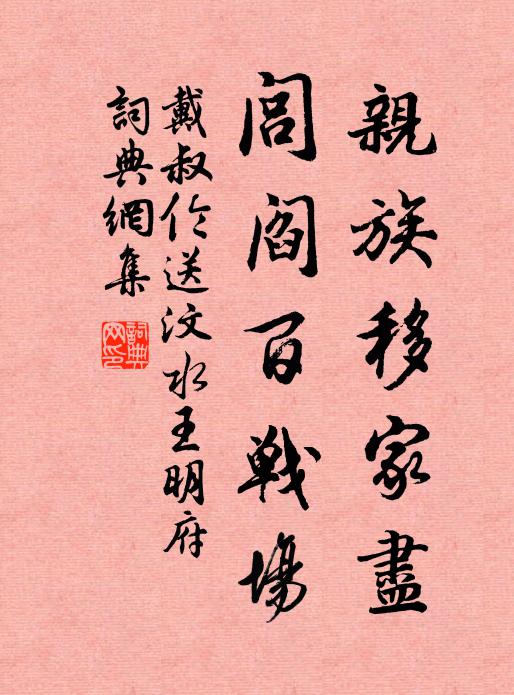 親族移家盡
閭閻百戰場
戴叔倫送汶水王明府
詞典網集
詞典網印